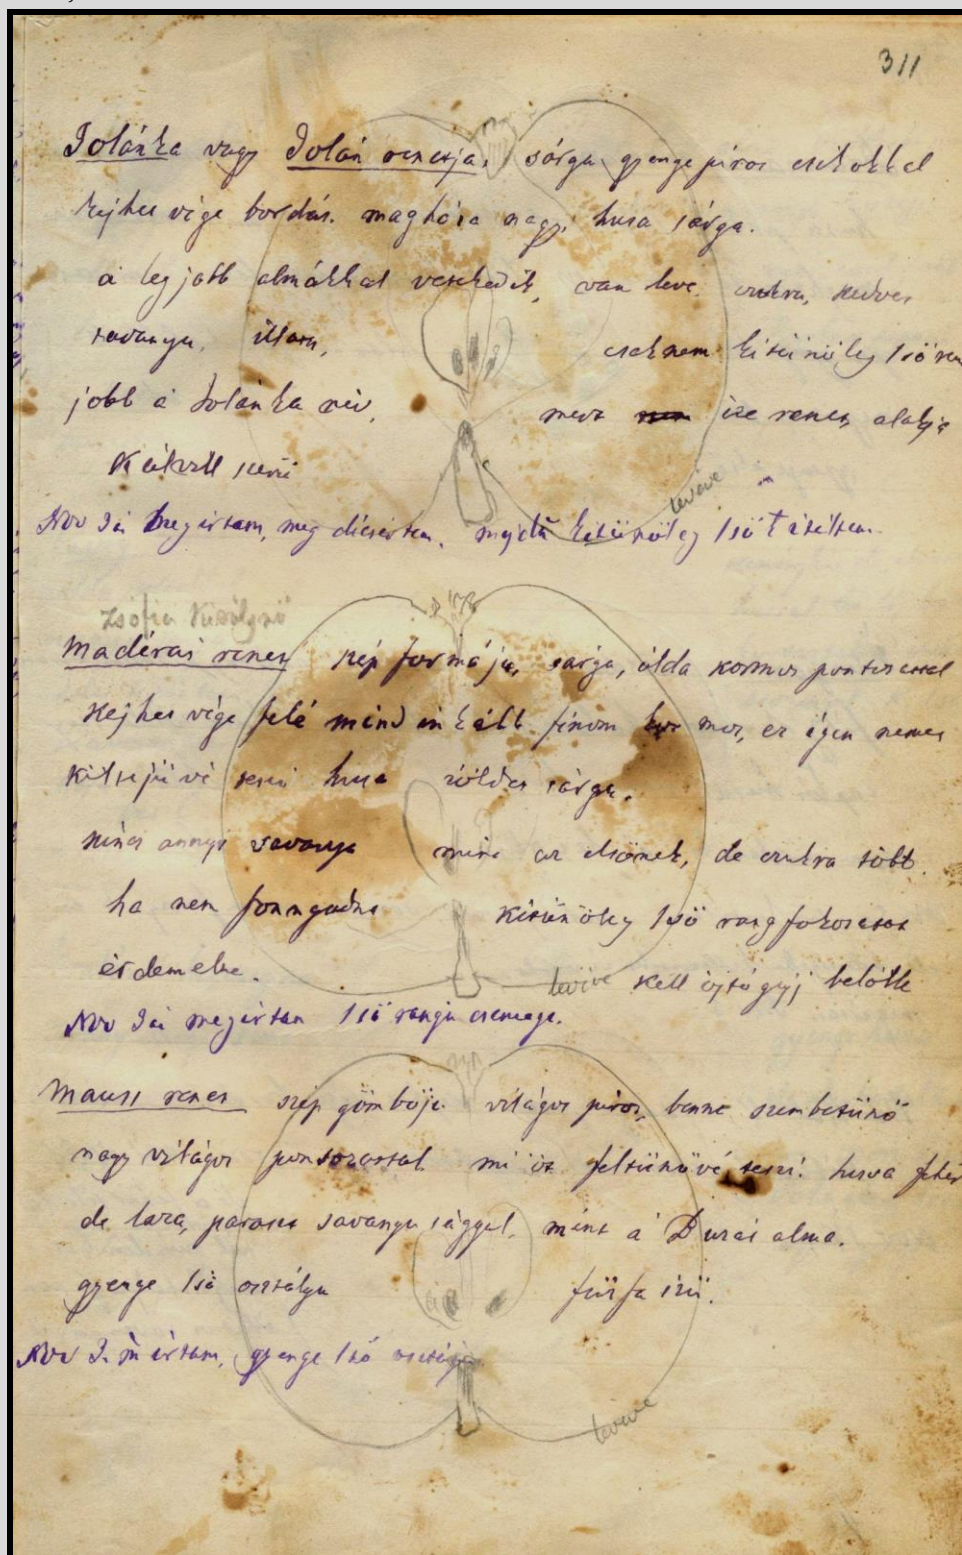 311
Jolánka vagy Jolán renetja. sárga gyenge piros csikokkal
kejhes vége bordás. magháza nagy, husa sárga.
a leg jobb almákkal vetekedik, van leve, cukra, nedves
savanyu, illata, csaknem kitünöleg 1sö ren
jobb a Jolánka név, mert nem ize renet, alakja
leveve
Nov 3 án megirtam, meg dicsirtem, majd kitünöleg 1sö
Zsófia Királynö
Madérai renet szép formája, sárga, ólda kormos pontozattal
kejhes vége felé mind inkább finom kormos, ez igen nemes
kitsejüvé teszi husa zöldes sárga.
nincs annyi savanya mint az elsönek, de cukra több.
ha nem fonnyadna kitünöleg 1sö rangfokozatot
érdemelne. leveve kell ojtógajj belötle
Nov 3 án megirtam 1sö rangu csemege.
Mauss renet szép gömböjü világos piros, benne szembetünö
nagy világos pontozattal mi öt feltünövé teszi. husa fehér
de laza, parasze savanyu sággal, mint a Burai alma.
gyenge 1sö osztályu füszfa izü.
Nov 3. án irtam, gyenge 1sö osztályu
leveve